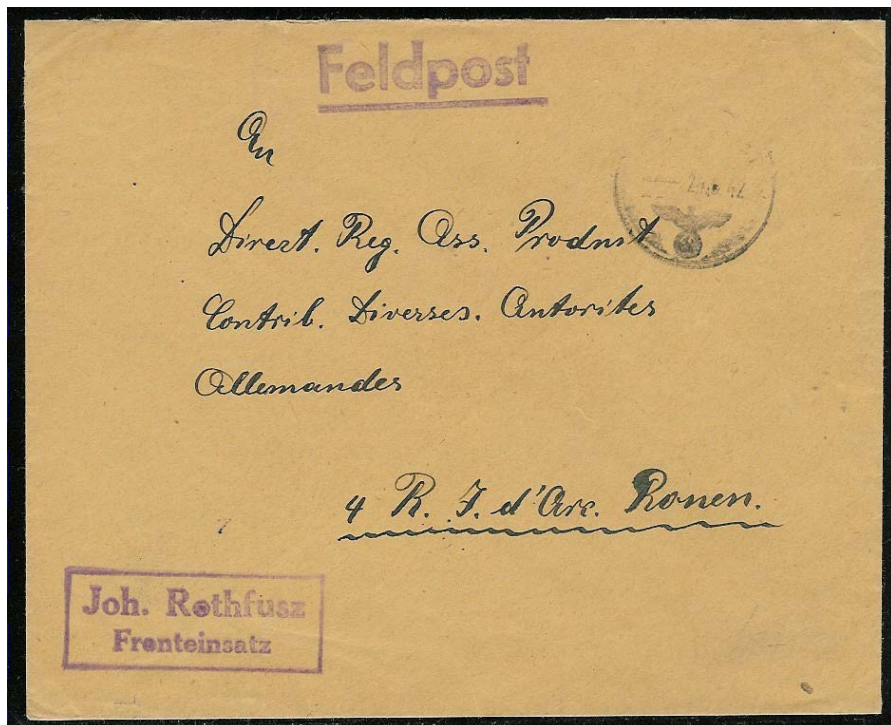 Feldpost
An
Direct. Reg. Ass. Produit
Contrib. Diverses. Autorites
Allemandes
4 R. J. d'Arc. Rouen.
Joh. Rothfusz
Fronteinsatz